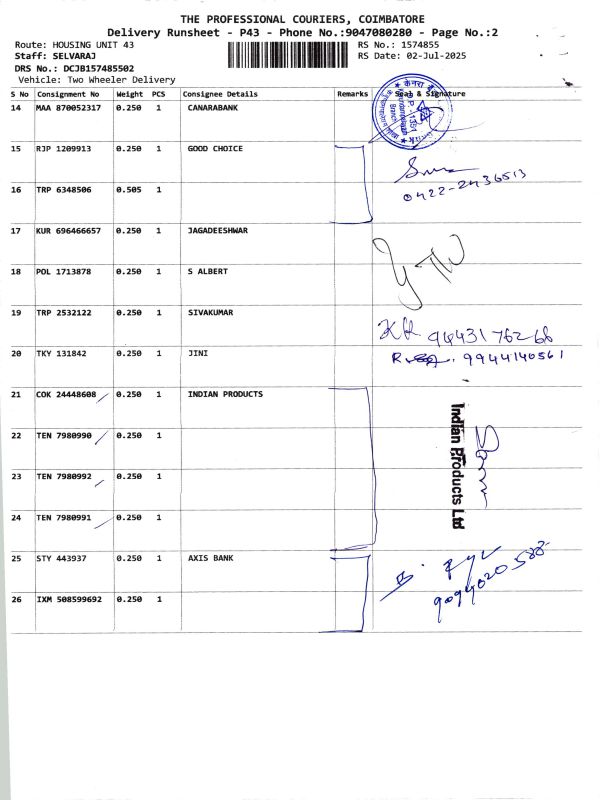 THE PROFESSIONAL COURIERS, COIMBATORE
Delivery Runsheet - P43 - Phone No.:9047080280 - Page No.:2
Route: HOUSING UNIT 43 RS No.: 1574855
Staff: SELVARAJ RS Date: 02-Jul-2025
DRS No.: DCJB157485502
Vehicle: Two Wheeler Delivery
S No Consignment No Weight PCS Consignee Details Remarks Seal & Signature
14 MAA 870052317 0.250 1 CANARABANK
15 RJP 1209913 0.250 1 GOOD CHOICE
16 TRP 6348506 0.505 1
0422-2436513
17 KUR 696466657 0.250 1 JAGADEESHWAR
18 POL 1713878 0.250 1 S ALBERT
19 TRP 2532122 0.250 1 SIVAKUMAR
94431 76266
20 TKY 131842 0.250 1 JINI
9944140561
21 COK 24448608 0.250 1 INDIAN PRODUCTS
Indian Products Ltd
22 TEN 7980990 0.250 1
23 TEN 7980992 0.250 1
24 TEN 7980991 0.250 1
25 STY 443937 0.250 1 AXIS BANK
9094020588
26 IXM 508599692 0.250 1